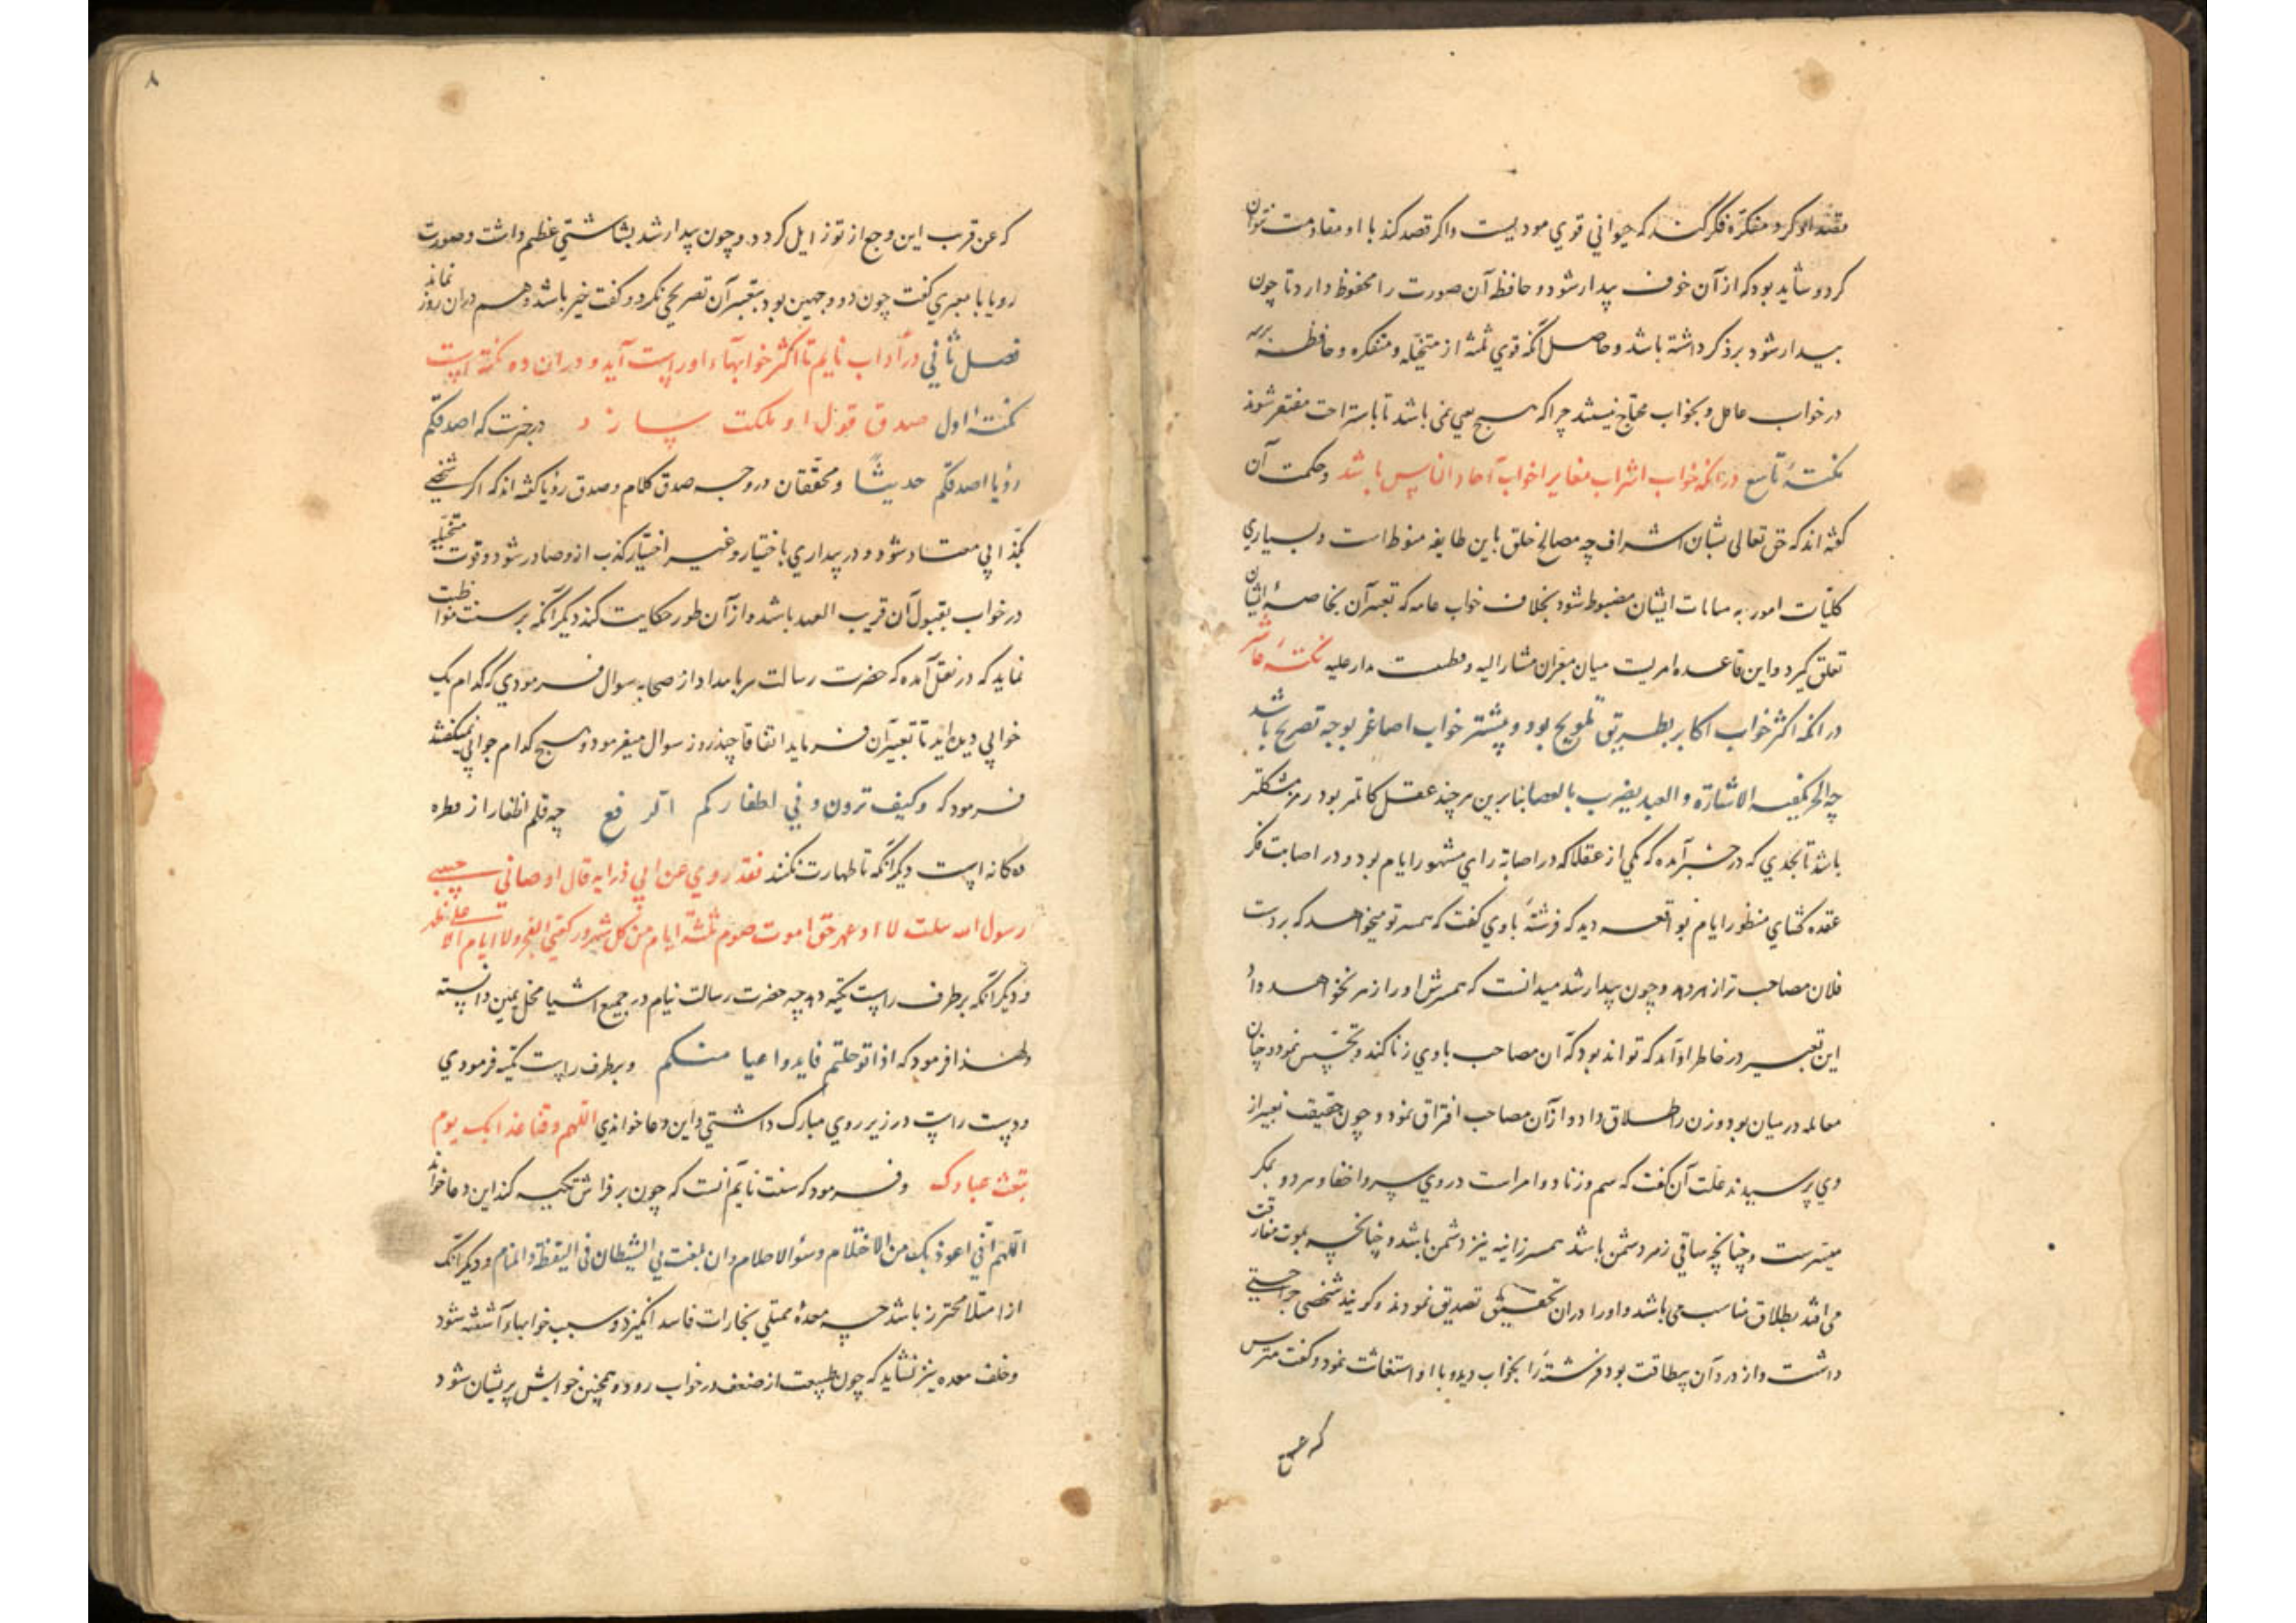 مقصد او کرد متفکره فکر کند که حیوانی قوی موذیست و اکر قصد کند با او مقاومت نتوان
کرد و شاید بود که از آن خوف بیدار شود و حافظه آن صورت را محفوظ دارد تا چون
بیدار شود بر ذکر داشته باشد و حاصل آنکه قوی ثلثه از متخیله و متفکره و حافظه
در خواب عامل و بخواب محتاج نیستند چرا که هیچ می نمی باشد تا باستراحت مفتقر شوند
نکتهٔ تاسع در آنکه خواب اشراف مغایر اخواب آحاد الناس باشد و حکمت آن
کفته اند که حق تعالی بشان اشراف چه مصالح خلق باین طایفه منوط است و بسیاری
کلیّات امور به منامات ایشان مضبوط شود بخلاف خواب عامه که تعبیر آن بخاصهٔ ایشان
تعلق کیرد و این قاعده امریست میان معبّران مشار الیه و مدار علیه نکتهٔ عاشر
در آنکه اکثر خواب اکابر بطریق تلویح بود و بیشتر خواب اصاغر بوجه تصریح باشد
چه الحر یکفیه الاشارة و العبد یضرب بالعصا بنابرین هر چند عقل کاملتر بود رمز مشکلتر
باشد تا بحدی که در خبر آمده که یکی از عقلا که در اصابة رای مشهور ایام بود و در اصابت فکر
عقده کشای منظور ایام بواقعه دید که فرشتهٔ با وی کفت که همسر تو میخواهد که بر دست
فلان مصاحب ترا زهر دهد و چون بیدار شد میدانست که همسرش او را زهر نخواهد داد
این تعبیر در خاطر او آمد که تواند بود که آن مصاحب با وی زنا کند و تجسّس نمود و چنان
معامله در میان بود و زن را طلاق داد و از آن مصاحب افتراق نمود و چون حقیقت تعبیر از
وی پرسیدند علت آن کفت که سم و زنا دو امراست در وی سر و اخفا و هر دو بمکر
میسرست و چنانچه ساقی زهر دشمن باشد همسر زانیه نیز دشمن باشد و چنانچه بموت مفارقت
می افتد بطلاق مناسب می باشد و او را در آن تحقیق تصدیق نمودند و کویند شخصی جراحتی
داشت و از درد آن بیطاقت بود فرشتهٔ را بخواب دید و با او استغاثت نمود و کفت مترس
که عنـ
٨
که عن قریب این وجع از تو زایل کردد و چون بیدار شد بشاشتی عظیم داشت و صورت
رویا با معبری کفت چون ذو وجهین بود بتعبیر آن تصریحی نکرد و کفت خیر باشد و هم در آن روز نماند
فصل ثانی در آداب نایم تا اکثر خوابهاء او راست آید و در آن ده نکته است
نکتهٔ اول صدق قول او ملکت سازد در خبرست که اصدقکم
رؤیا اصدقکم حدیثًا و محقّقان در وجه صدق کلام و صدق رؤیا کفته اند که اکر شخصی
بکذابی معتاد شود و در بیداری باختیار و غیر اختیار کذب از و صادر شود و قوت متخیله
در خواب بقبول آن قریب العهد باشد و از آن طور حکایت کند دیکر آنکه بر سنت مواظبت
نماید که در نقل آمده که حضرت رسالت هر بامداد از صحابه سوال فرمودی که کدام یک
خوابی دیده اید تا تعبیر آن فرماید اتفاقا چند روز سوال میفرمود و هیچ کدام جوابی نمیکفتند
فرمود که و کیف ترون و فی اظفارکم الرفغ چه قلم اظفار از فطره
ده کانه است دیکر آنکه تا طهارت نکنند فقد روی عن ابی ذر انه قال اوصانی حبیبی
رسول الله بثلث لا ادعهن حتی اموت صوم ثلثة ایام من کل شهر و رکعتی الفجر و لا انام الا علی طهر
و دیکر آنکه بر طرف راست تکیه دهد چه حضرت رسالت نیام در جمیع اشیا محل یمین دانسته
و لهذا فرمود که اذا توضأتم فابدوا بمیامنکم و بر طرف راست تکیه فرمودی
و دست راست در زیر روی مبارک داشتی و این دعا خواندی اللهم وقنا عذابک یوم
تبعث عبادک و فرمود که سنت نایم آنست که چون بر فراش تکیه کند این دعا خواند
اللهم انی اعوذ بک من الاحتلام و سوٴ الاحلام و ان یلعب بی الشیطان فی الیقظة و المنام و دیکر آنکه
از امتلا محترز باشد چه معدهٔ ممتلی بخارات فاسد انکیزد و سبب خوابهاء آشفته شود
و خلف معده نیز نشاید که چون طبیعت از ضعف در خواب رود و همچنین خوابش پریشان شود